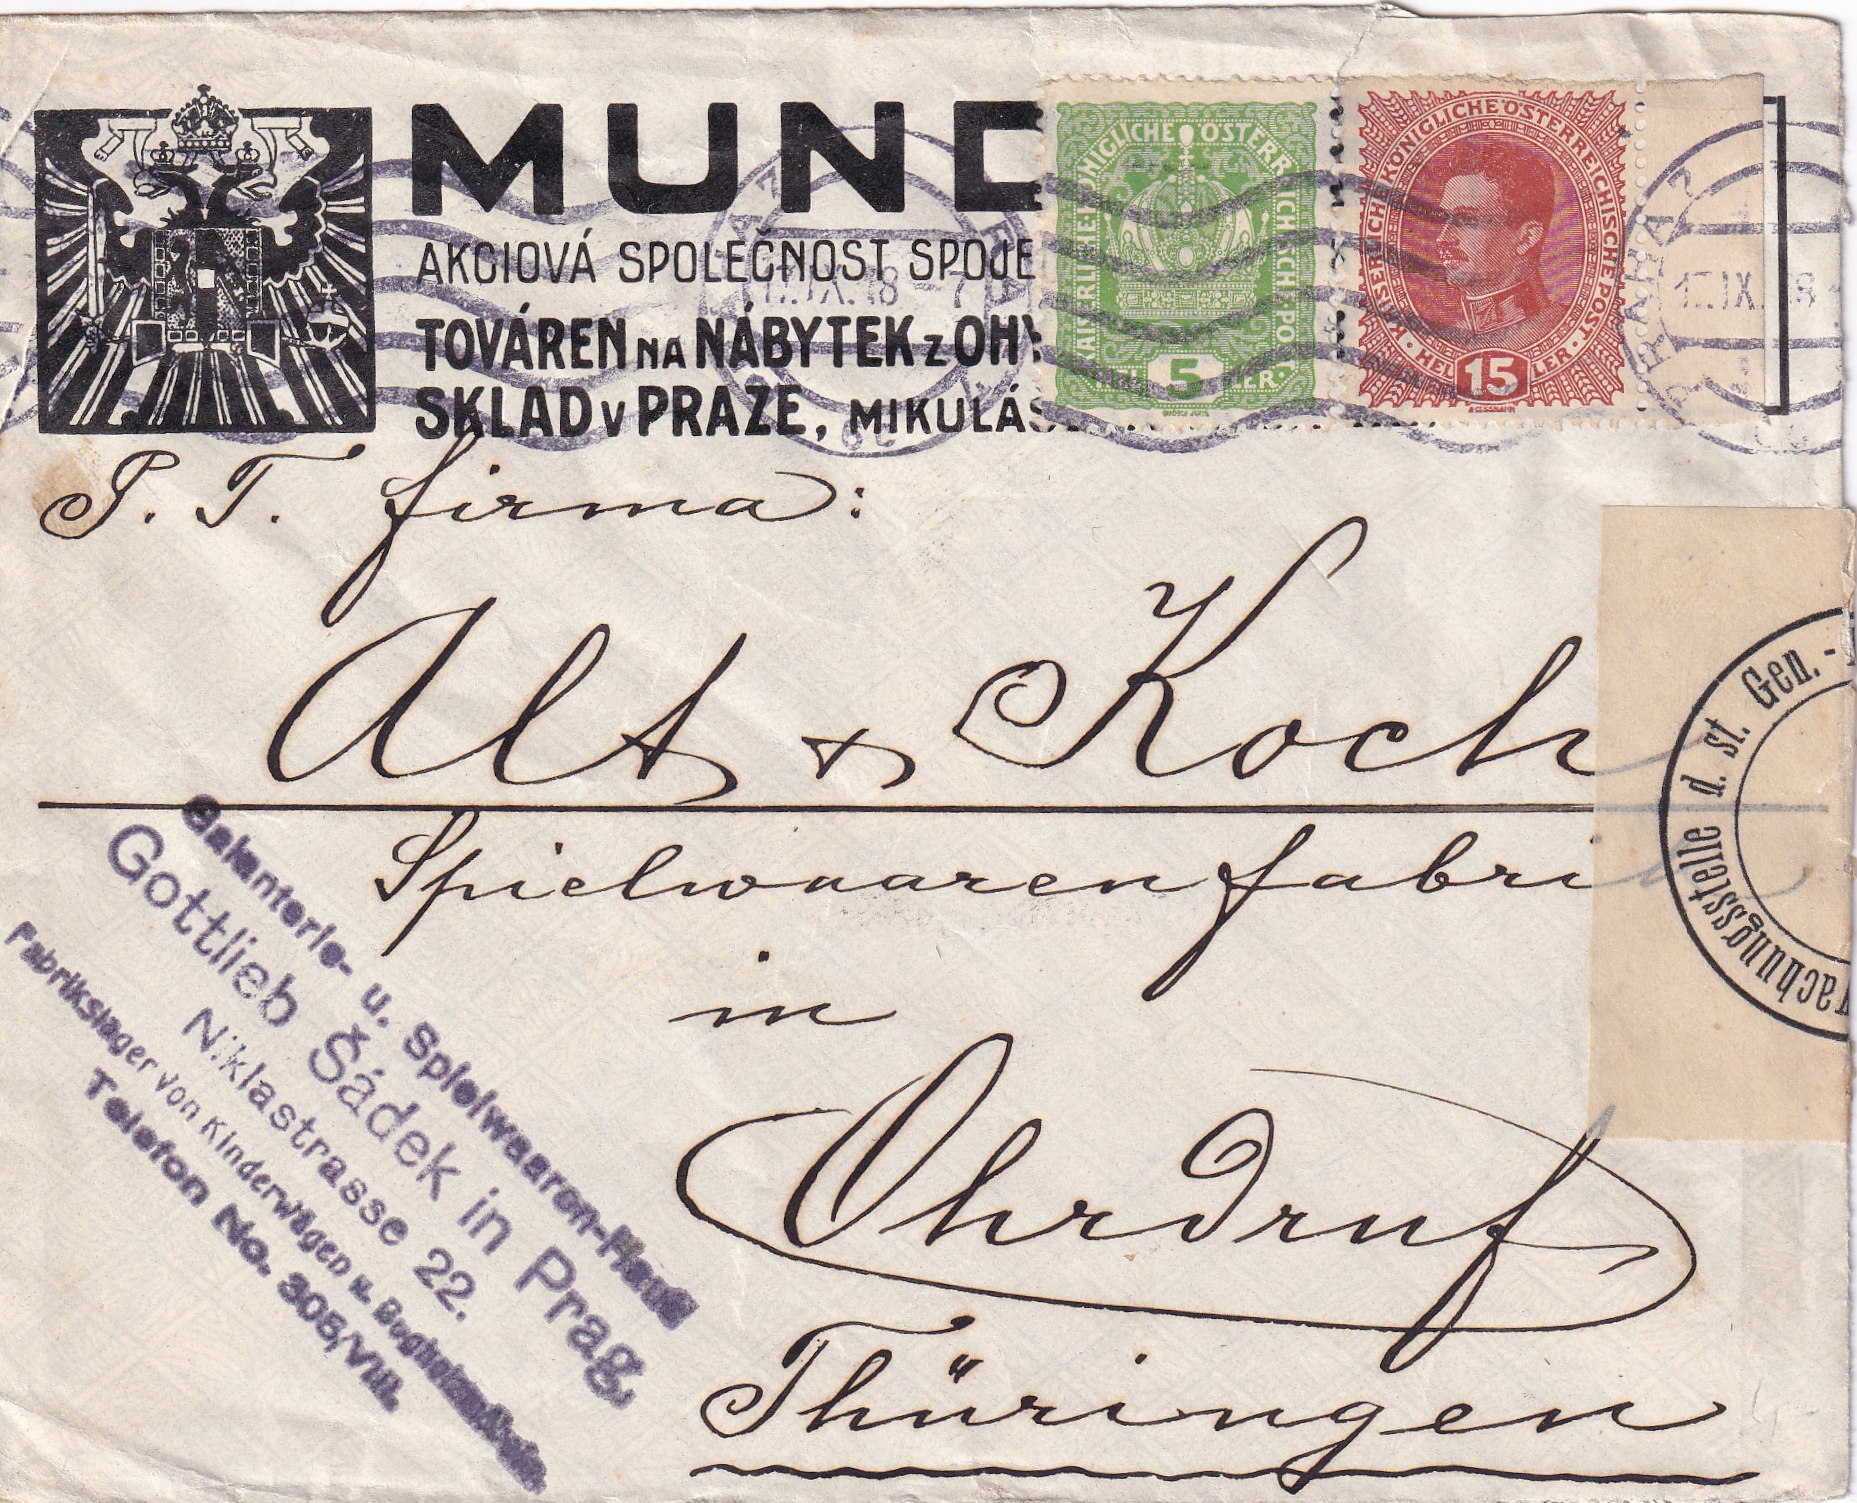 MUND
AKCIOVÁ SPOLEČNOST SPOJE
TOVÁREN NA NÁBYTEK Z OHÝ
SKLAD V PRAZE, MIKULÁŠ
KAISERLICHE KÖNIGLICHE ÖSTERREICHISCHE POST
5 HELLER
KAISERLICHE KÖNIGLICHE ÖSTERREICHISCHE POST
HELLER
15
PRAHA 7
17.IX.18
P. T. firma:
Alt & Koch
Spielwaarenfabrik
in
Ohrdruf
Thüringen
Galanterie- u. Spielwaaren-Haus
Gottlieb Šádek in Prag,
Niklastrasse 22.
Fabrikslager von Kinderwägen u.
Telefon No. 305/VIII.
achungsstelle d. st. Gen.-